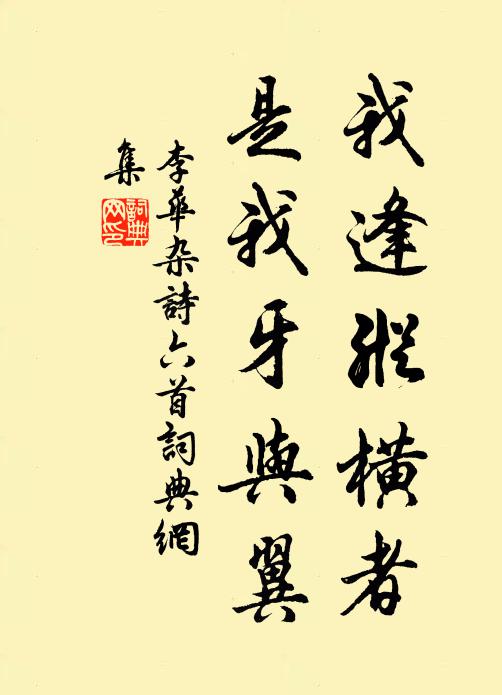 我逢縱橫者
是我牙與翼
李華杂詩六首詞典網
集
詞典
网印